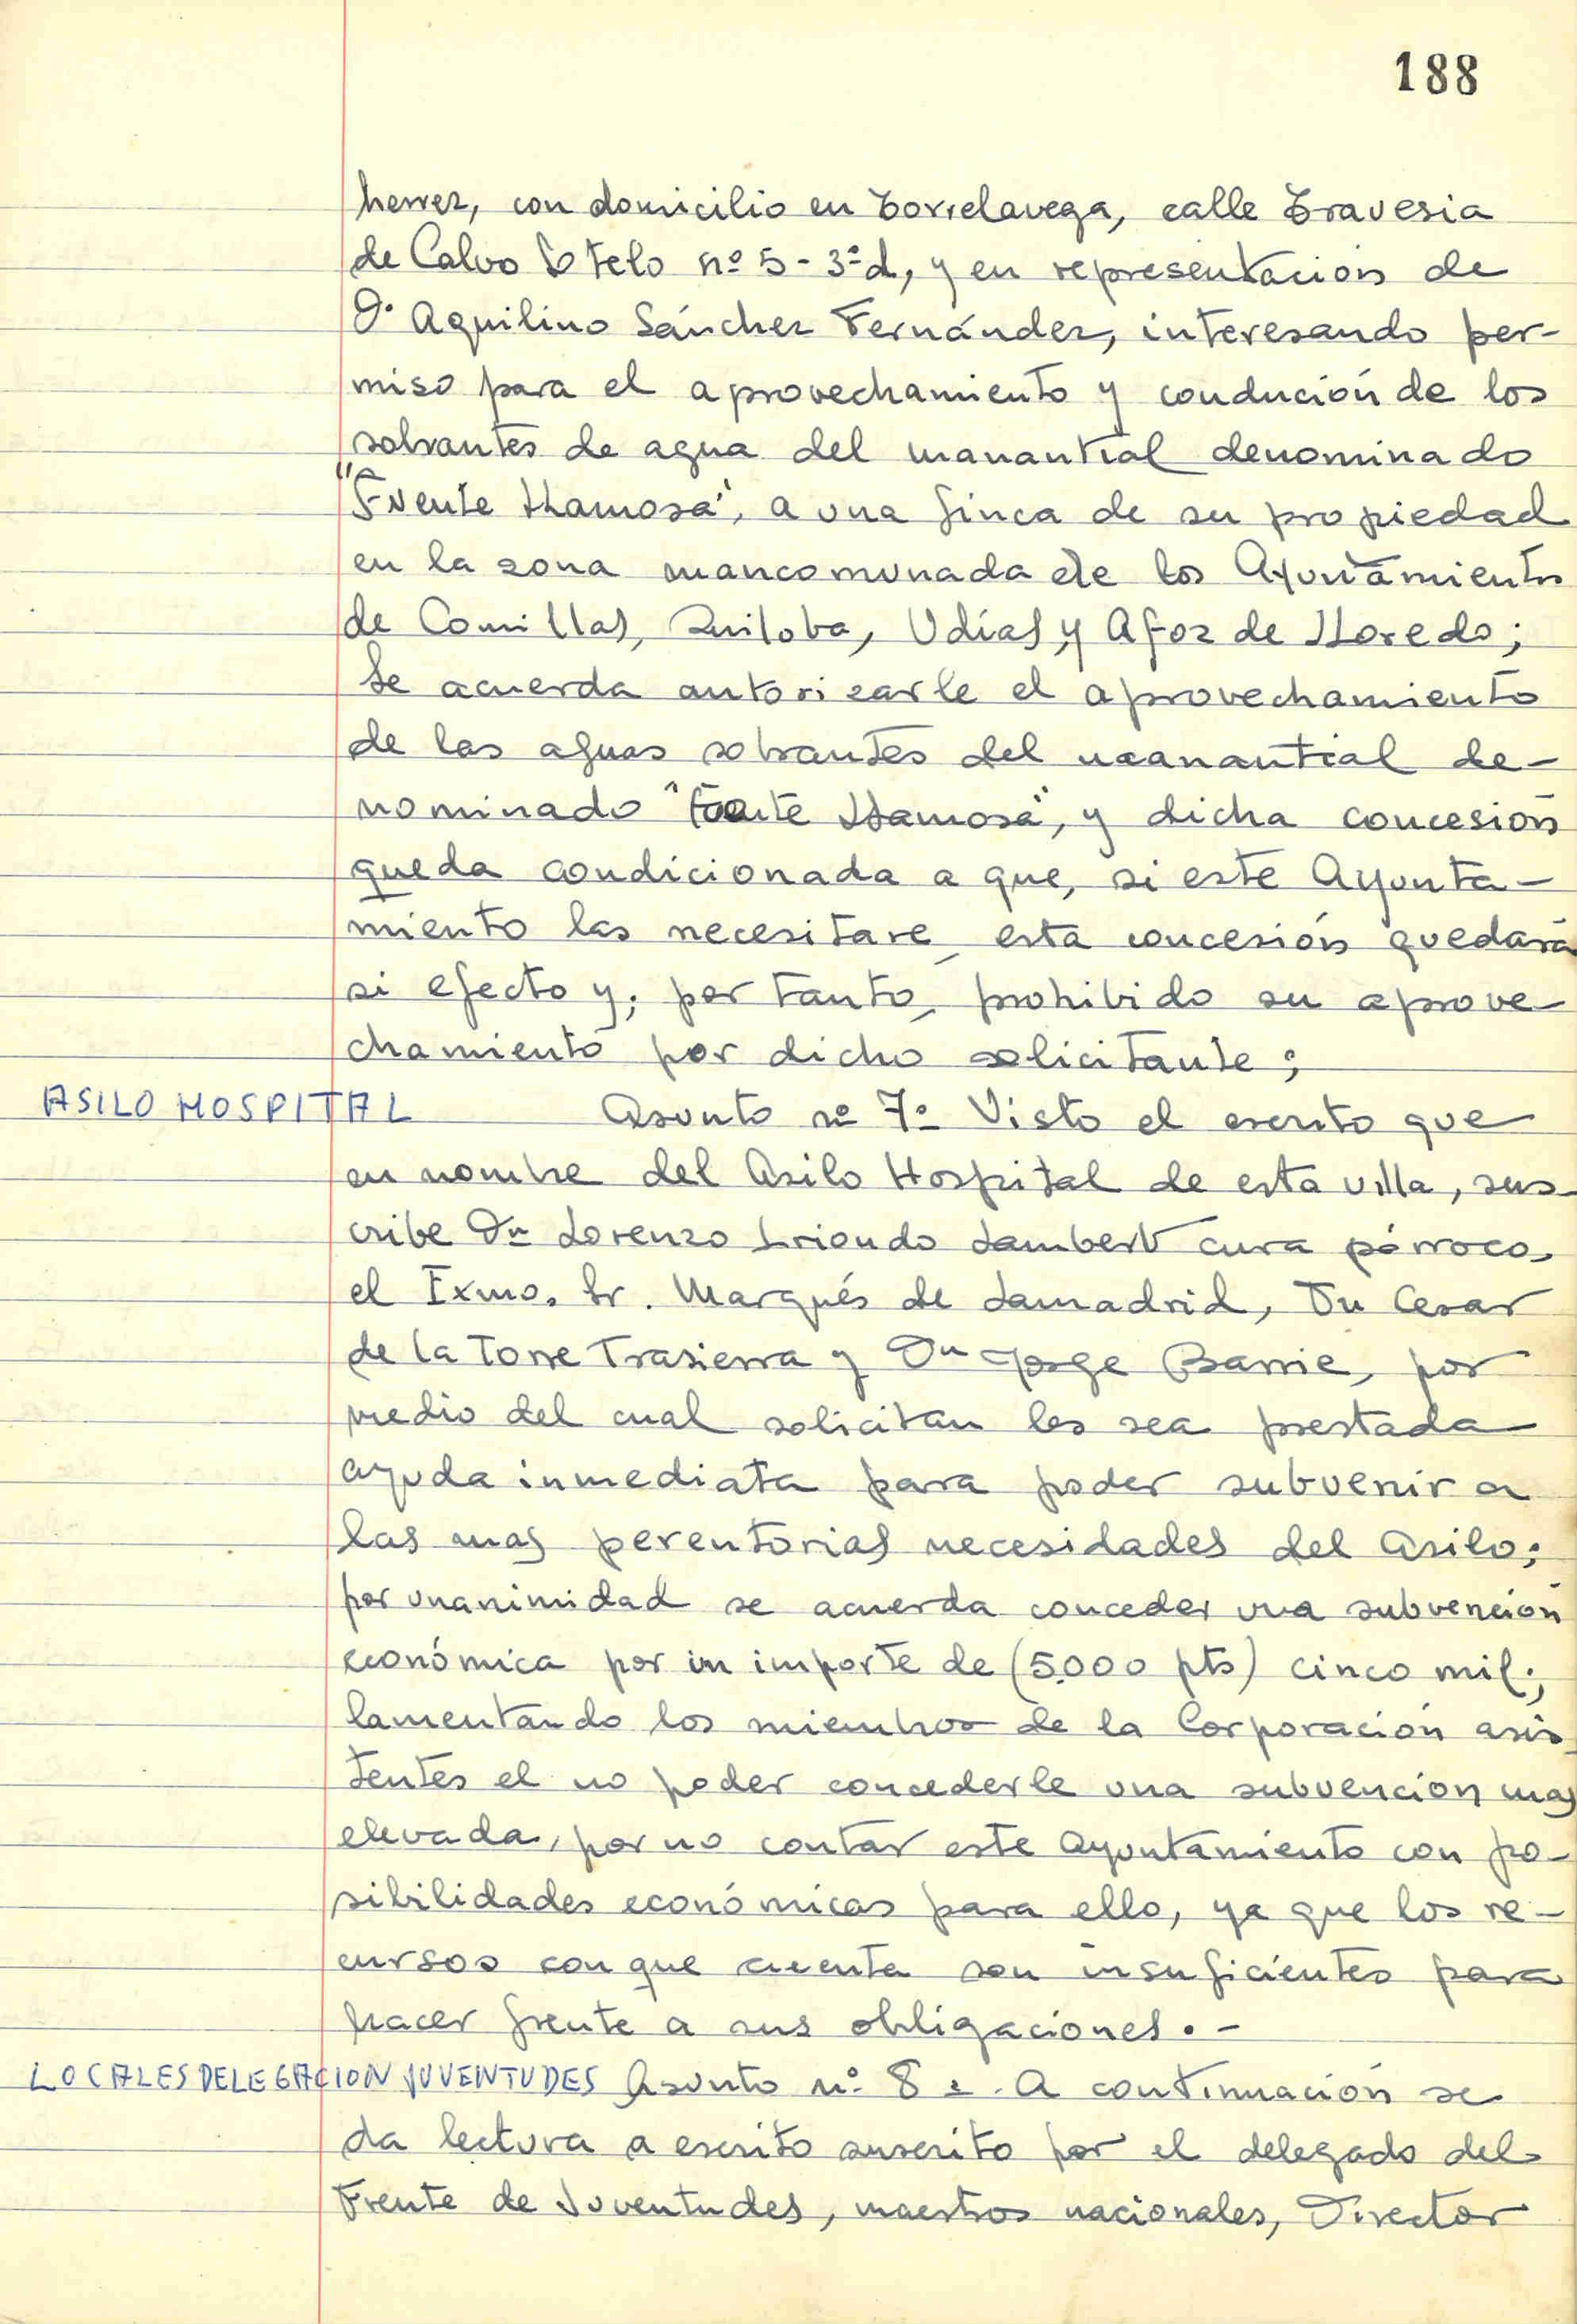 188
herrez, con domicilio en Torrelavega, calle Travesia
de Calvo Sotelo nº 5 - 3º d, y en representación de
D. Aquilino Sánchez Fernández, interesando per-
miso para el aprovechamiento y condución de los
sobrantes de agua del manantial denominado
"Fuente Llamosa", a una finca de su propiedad
en la zona mancomunada de los Ayuntamientos
de Comillas, Ruiloba, Udías y Alfoz de Lloredo;
Se acuerda autorizarle el aprovechamiento
de las aguas sobrantes del manantial de-
nominado "Fuente Llamosa", y dicha concesión
queda condicionada a que, si este Ayunta-
miento las necesitare, esta concesión quedará
si efecto y, por tanto, prohibido su aprove-
chamiento por dicho solicitante;
ASILO HOSPITAL Asunto nº 7º Visto el escrito que
en nombre del Asilo Hospital de esta villa, sus-
cribe Dn Lorenzo Lambert cura párroco,
el Exmo. Sr. Marqués de Lamadrid, Dn Cesar
de la Torre Trasierra y Dn Jorge Barrie, por
medio del cual solicitan les sea prestada
ayuda inmediata para poder subvenir a
las mas perentorias necesidades del Asilo;
por unanimidad se acuerda conceder una subvención
económica por in importe de (5.000 pts) cinco mil;
lamentando los miembros de la Corporación asis-
tentes el no poder concederle una subvencion mas
elevada, por no contar este Ayuntamiento con po-
sibilidades económicas para ello, ya que los re-
cursos con que cuenta son insuficientes para
hacer frente a sus obligaciones. -
LOCALES DELEGACION JUVENTUDES Asunto nº 8º. A continuación se
da lectura a escrito suscrito por el delegado del
Frente de Juventudes, maestros nacionales, Director